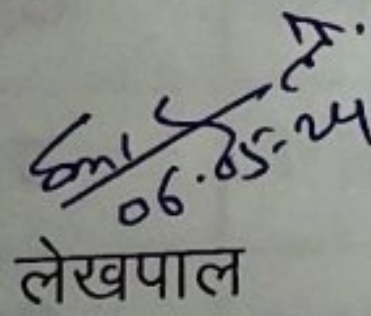 ले.
06.05.24
लेखपाल